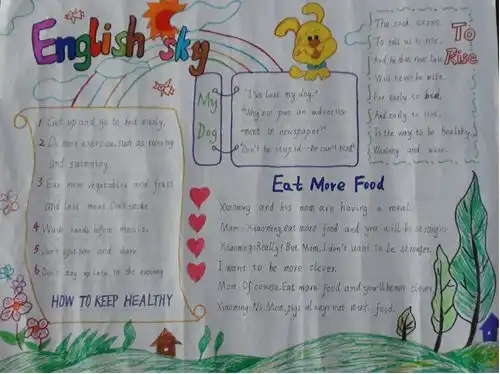 English Sky
To Rise
The cock crows,
To tell us to rise,
And he that not late
Will never be wise.
For early to bed,
And early to rise,
Is the way to be healthy,
Wealthy and wise.
My Dog
"I've lost my dog."
"Why not put an advertise
-ment in newspaper?"
"Don't be stupid - he can't read"
1 Get up and go to bed early.
2 Do more exercise, such as running
and swimming.
3 Eat more vegetables and fruits
and less meat. Don't smoke
4 Wash hands before meals.
5 Don't
6 Don't stay up late in the evening
HOW TO KEEP HEALTHY
Eat More Food
Xiaoming and his mom are having a meal.
Mom: Xiaoming, eat more food and you will be stronger.
Xiaoming: Really? But Mom, I don't want to be stronger.
I want to be more clever.
Mom: Of course. Eat more food and you'll be more clever
Xiaoming: No, Mom, pigs always eat much food.